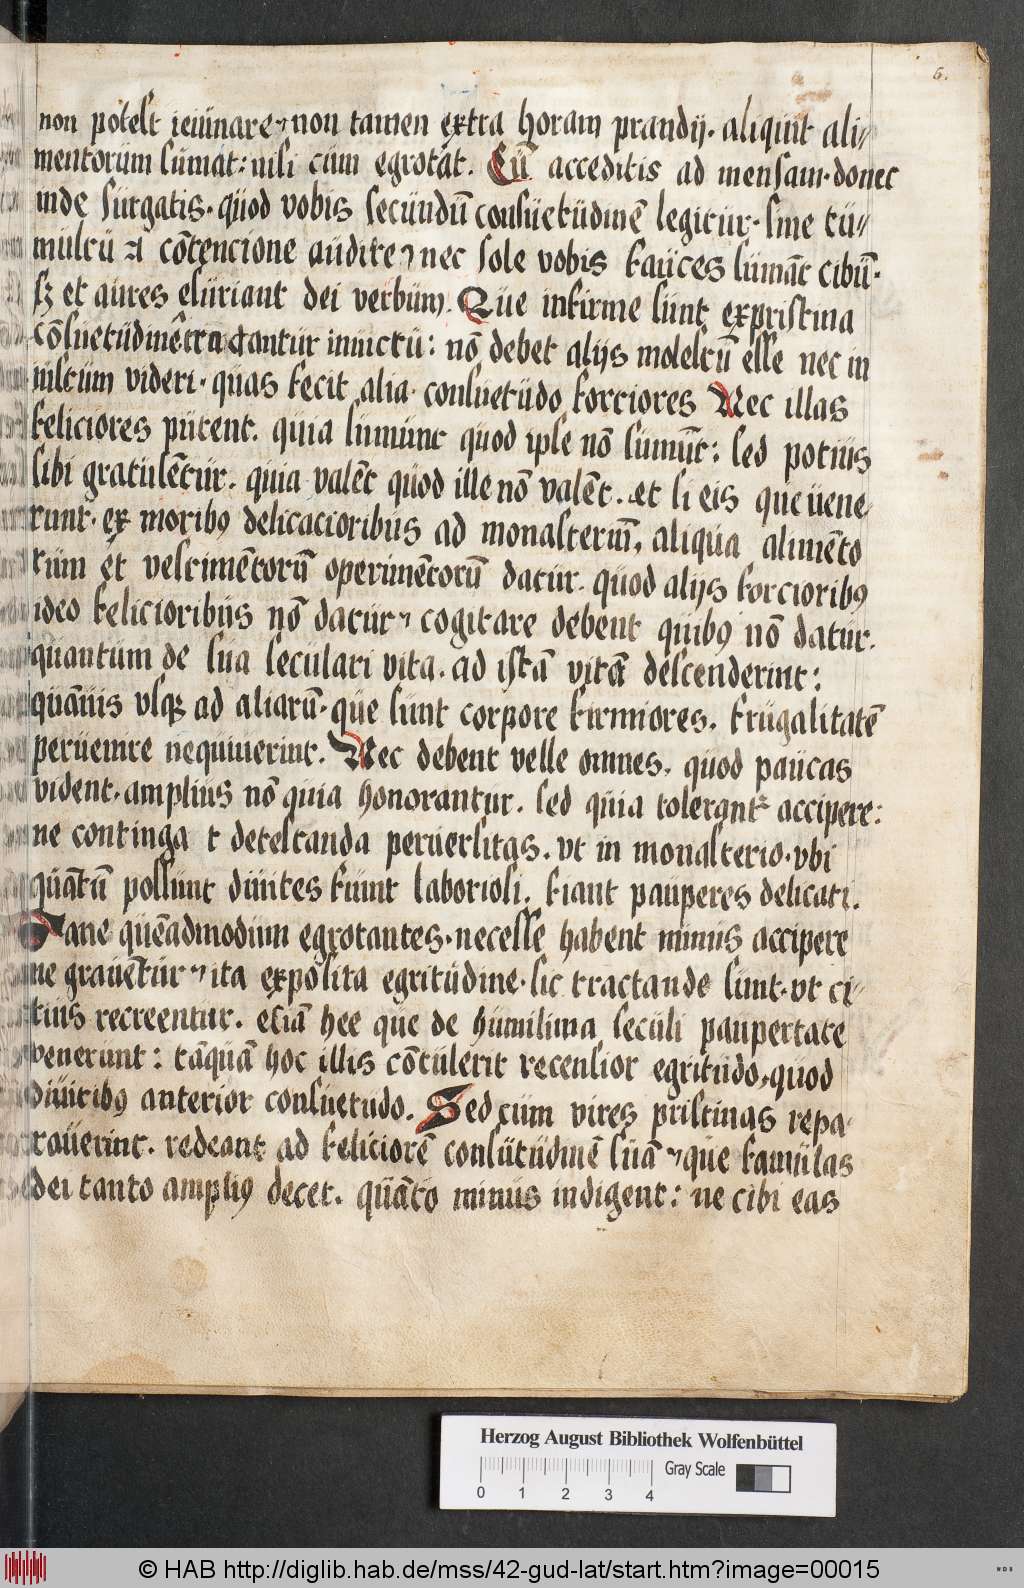 6.
non potest ieiunare non tamen extra horam prandij. aliquit ali-
mentorum sumat: nisi cum egrotāt. Cū acceditis ad mensam. donec
inde surgatis. quod vobis secundū consuetudinē legitur. sine tu-
multu et cōtencione audite nec sole vobis fauces sumāt cibū.
sꝫ et aures esuriant dei verbum. Que infirme sunt expristina
cōsuetudinē tractantur in uictu: nō debet alijs molestū esse nec in
iustum videri. quas fecit alia consuetudo forciores Nec illas
feliciores putent. quia sumunt quod ipse nō sumūt: sed potius
sibi gratulētur. quia valēt quod ille nō valēt. et si eis que uene
runt. ex moribꝰ delicacioribus ad monasteruī, aliqua alimēto
rum et vestimētorū operimētorū datur. quod alijs forcioribꝰ
ideo felicioribus nō datur cogitare debent quibꝰ nō datur.
quantum de sua seculari vita. ad istā vitā descenderint:
quāuis vsqꝫ ad aliarū. que sunt corpore firmiores. frugalitatē
peruenire nequiuerint. Nec debent velle omnes. quod paucas
vident. amplius nō quia honorantur. sed quia tolerantr accipere:
ne continga t detestanda peruersitas. vt in monasterio. vbi
quātū possunt diuites fiunt laboriosi. fiant pauperes delicati.
Sane quēadmodum egrotantes. necesse habent minus accipere
ne grauētur ita expolita egritudine. sic tractande sunt. vt ci-
tius recreentur. eciā hee que de humilima seculi paupertate
venerunt: tāquā hoc illis cōtulerit recensior egritudo, quod
diuitibꝰ anterior consuetudo. Sed cum vires pristinas repa
rauerint. redeant ad feliciorē consutudinē suā que famulas
dei tanto ampliꝰ decet. quāto minus indigent: ne cibi eas
Herzog August Bibliothek Wolfenbüttel
Gray Scale
0 1 2 3 4
© HAB http://diglib.hab.de/mss/42-gud-lat/start.htm?image=00015